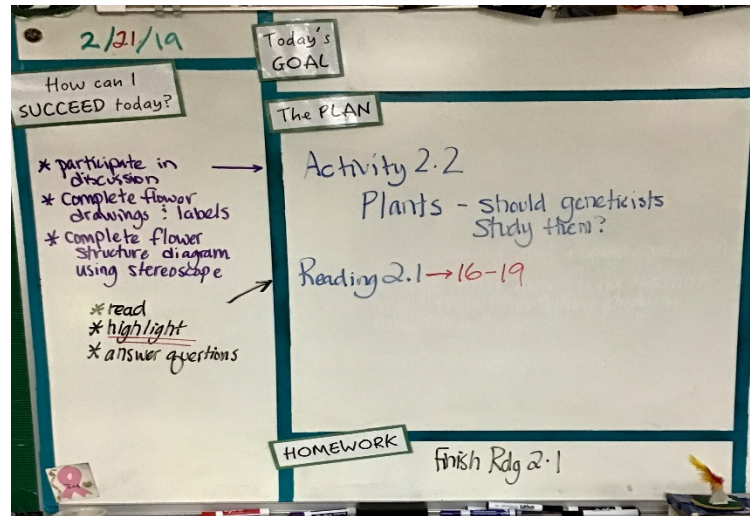 2/21/19
How can I
SUCCEED today?
* participate in
discussion
* Complete flower
drawings : labels
* complete flower
structure diagram
using stereoscope
* read
* highlight
* answer questions
Today's
GOAL
The PLAN
Activity 2.2
Plants - should geneticists
study them?
Reading 2.1→16-19
HOMEWORK
Finish Rdg 2.1